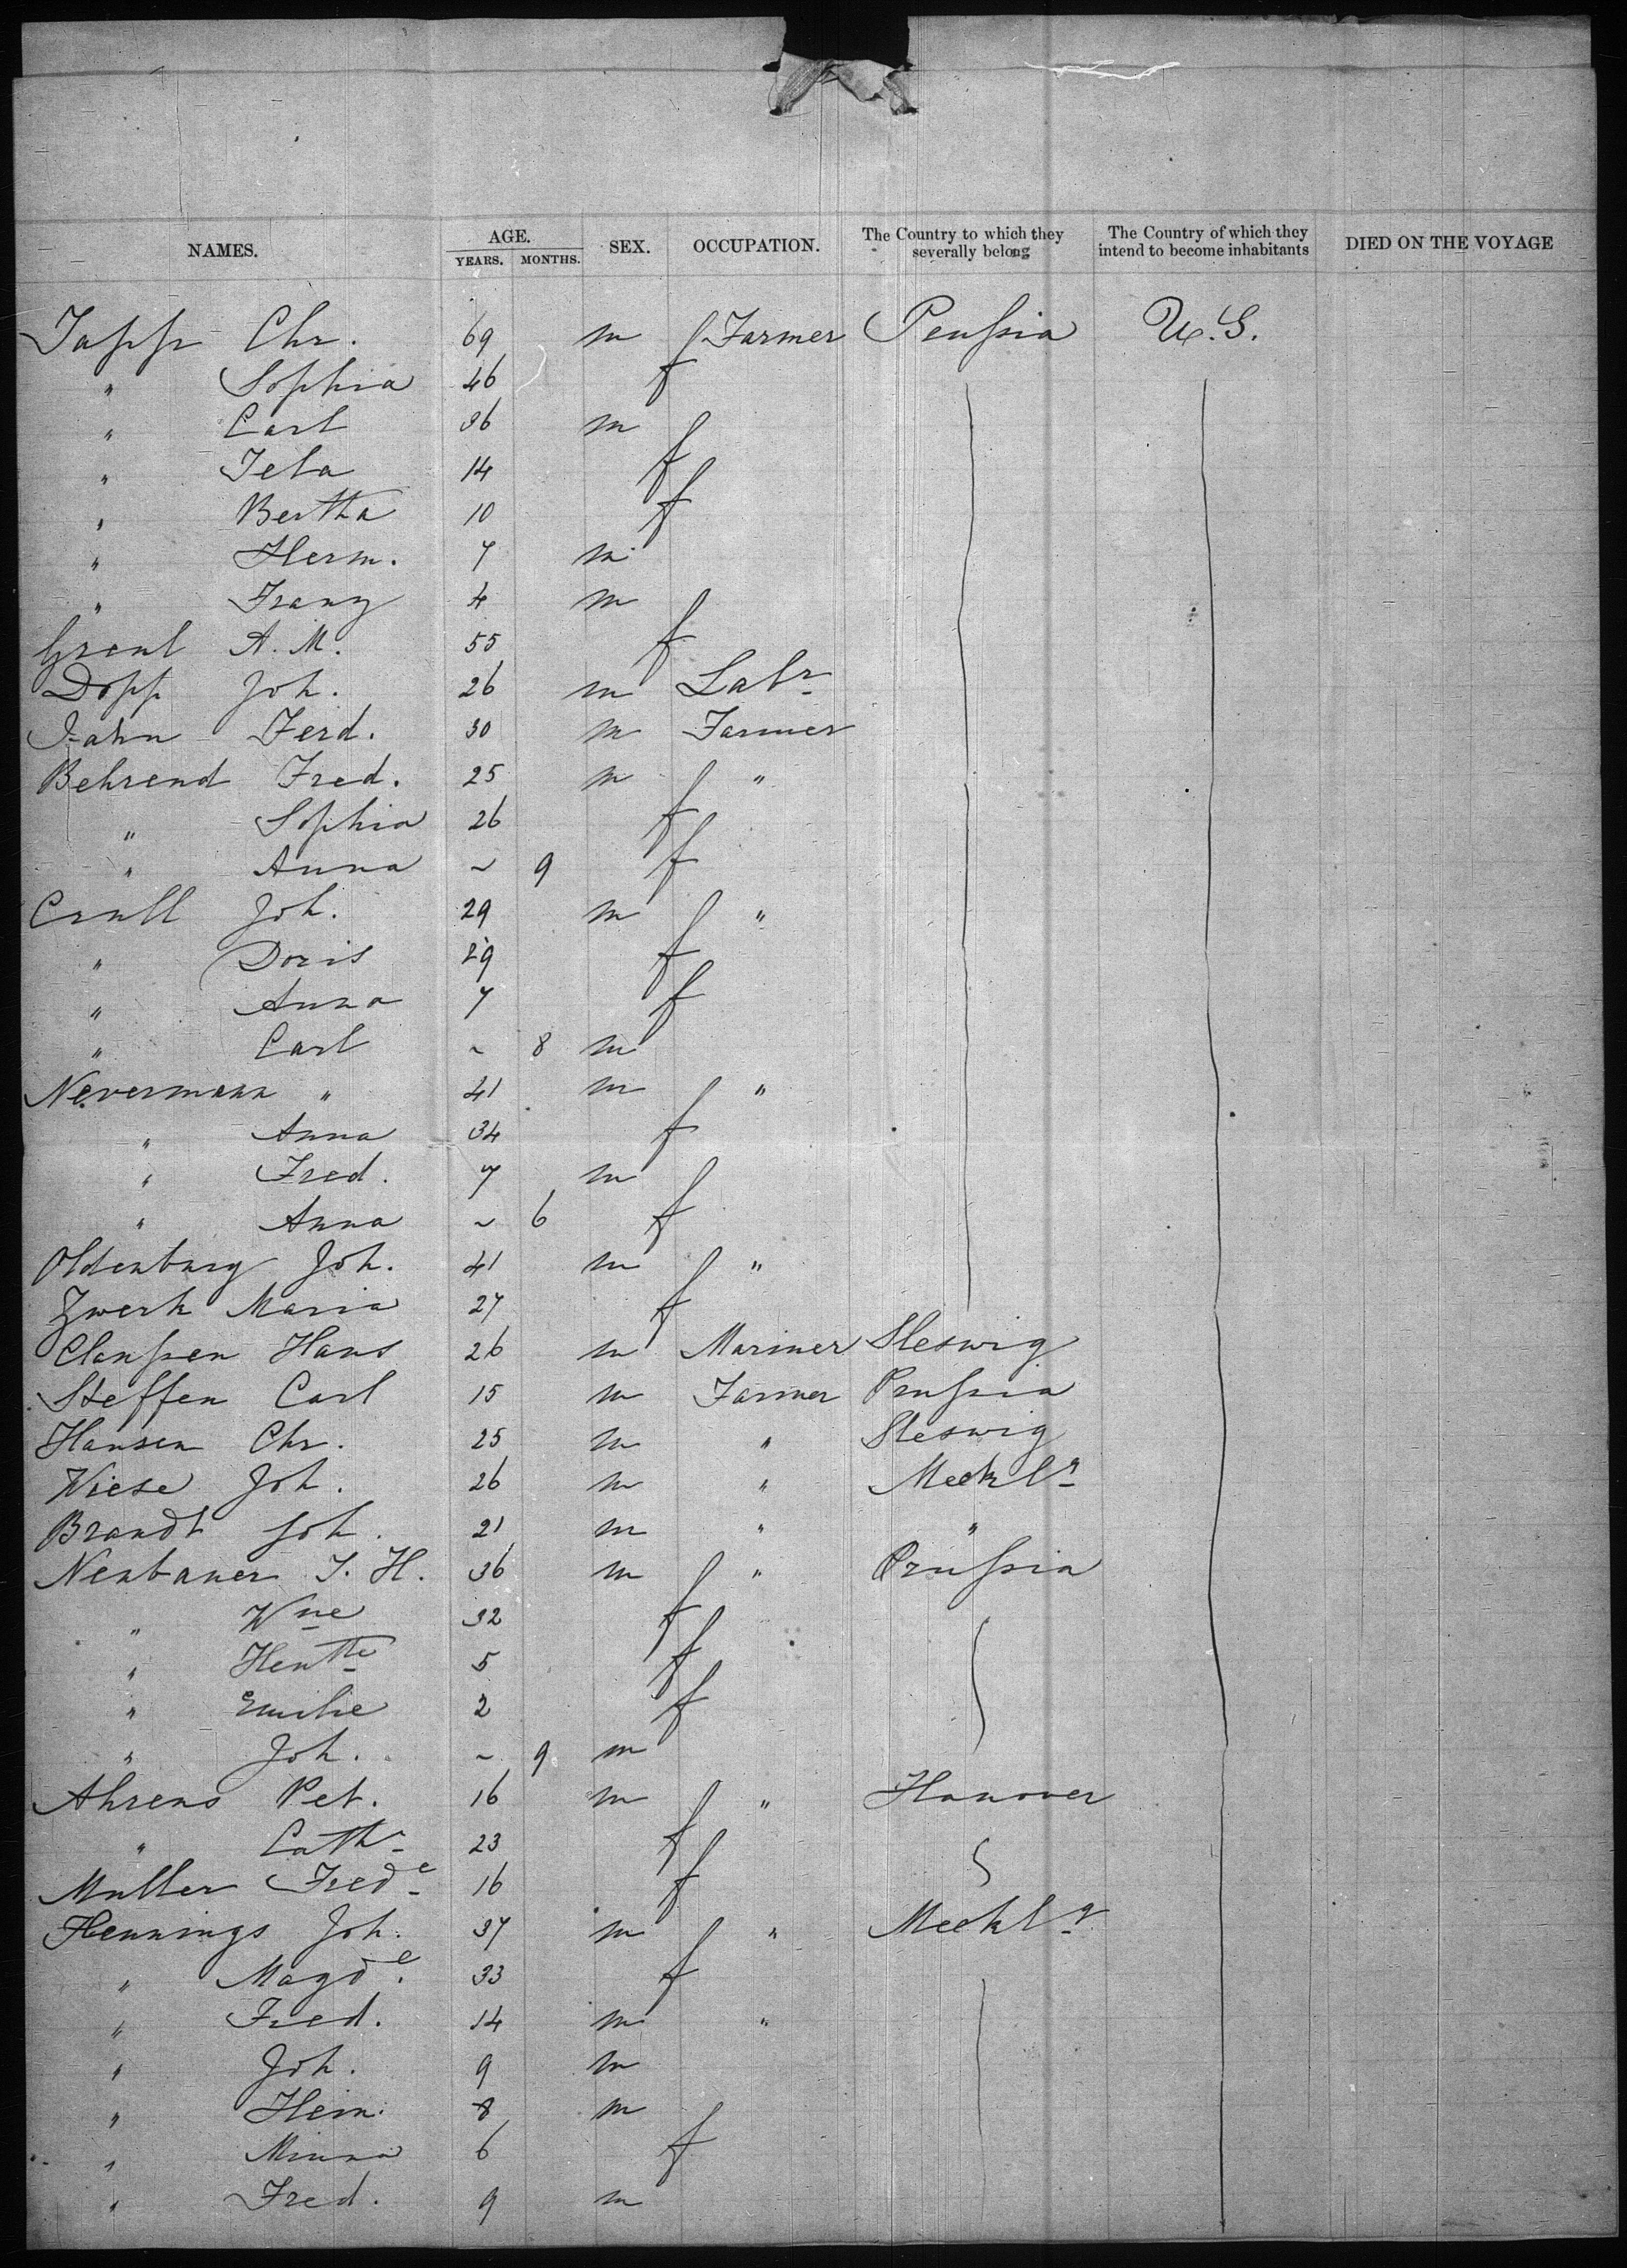 NAMES. AGE. YEARS. MONTHS. SEX. OCCUPATION. The Country to which they severally belong The Country of which they intend to become inhabitants DIED ON THE VOYAGE
Japp Chr. 69 m Farmer Preußsia U.S.
" Sophia 46 f
" Carl 36 m
" Jeta 14 f
" Bertha 10 f
" Herm. 7 m
" Franz 4 m
A. M. 55 f
Dopp Joh. 26 m Labr
Jahn Ferd. 30 m Farmer
Behrend Fred. 25 m "
" Sophia 26 f
" Anna ~ 9 f
Crull Joh. 29 m "
" Doris 29 f
" Anna 7 f
" Carl ~ 8 m
Nevermann " 41 m "
" Anna 34 f
" Fred. 7 m
" Anna ~ 6 f
Oldenburg Joh. 41 m "
Zwerk Maria 27 f
Claußen Hans 26 m Mariner Sleswig
Steffen Carl 15 m Farmer Prußia
Hansen Chr. 25 m " Sleswig
Wiese Joh. 26 m " Meckl
Brandt Joh. 21 m " "
Neubauer J. H. 36 m " Prußia
" Wne 32 f
" Hentte 5 f
" Emilie 2 f
" Joh. ~ 9 m
Ahrens Pet. 16 m " Hanover
" Cath 23 f
Muller Frede 16 f
Hennings Joh. 37 m " Meckl
" Magde. 33 f
" Fred. 14 m "
" Joh. 9 m
" Hein. 8 m
" Minna 6 f
" Fred. 9 m